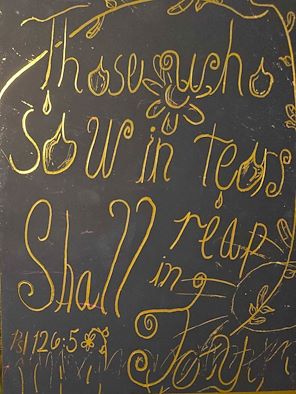 Those who
Sow in tears
Shall reap
in
Joy
Psl 126:5